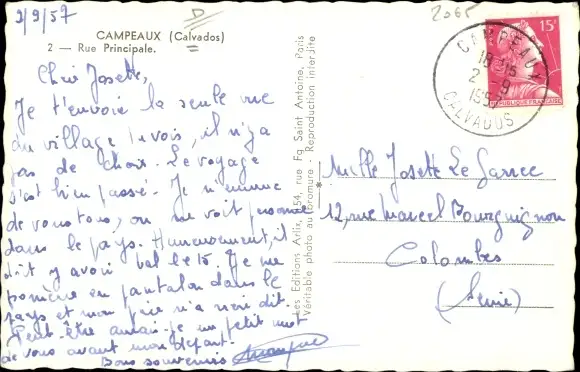 2/9/57
CAMPEAUX (Calvados)
2 — Rue Principale.
Chère Josette,
Je t'envoie la seule vue
du village. Tu vois, il n'y a
pas de choix. Le voyage
s'est bien passé. Je m'ennuie
de vous tous, on ne voit personne
dans le pays. Heureusement, il
doit y avoir bal le 15. Je me
promène en pantalon dans le
pays et mon père n'a rien dit.
Peut-être aurai-je un petit mot
de vous avant mon départ.
Bons souvenirs
Les Editions Artis, 154, rue Fg Saint Antoine, Paris
Véritable photo au bromure - Reproduction interdite
2065
CAMPEAUX
18 15
2 - 9
CALVADOS
15F
REPUBLIQUE FRANÇAISE
Melle Josette Le Garrec
12, rue Marcel Bourguignon
Colombes
(Seine)